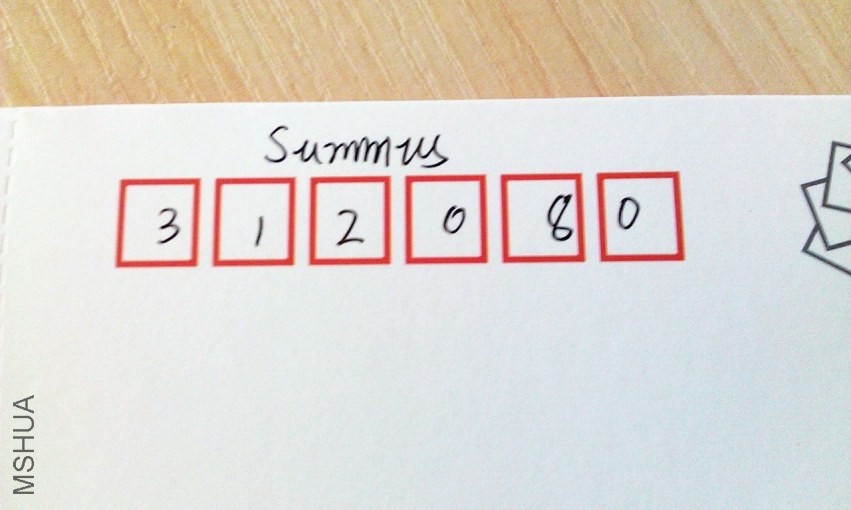 Summus
3 1 2 0 8 0
MSHUA